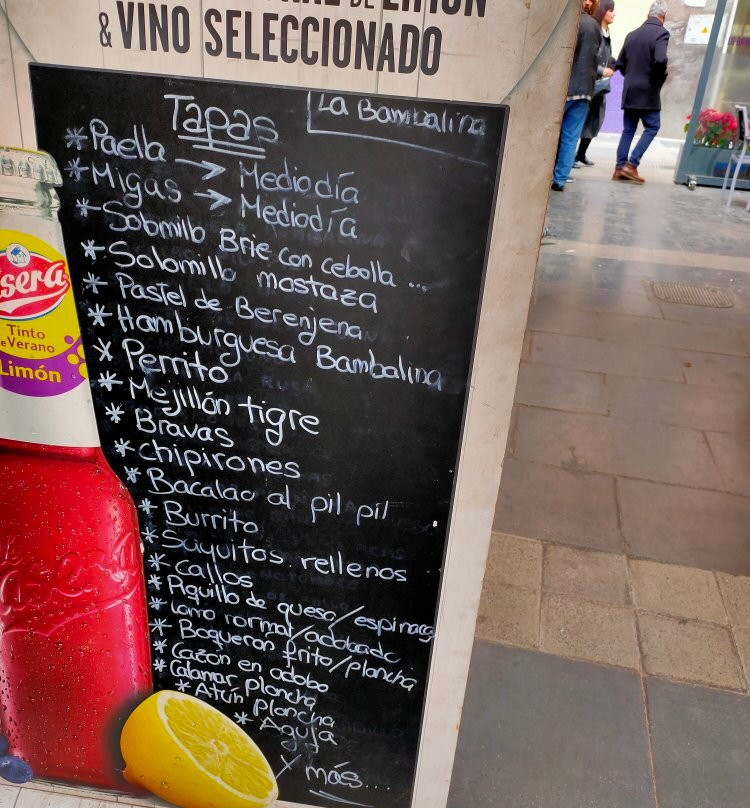 DE LIMÓN
& VINO SELECCIONADO
Tapas
La Bambalina
* Paella → Mediodía
* Migas → Mediodía
* Solomillo Brie con cebolla ...
* Solomillo mostaza
* Pastel de Berenjena
* Hamburguesa Bambalina
* Perrito
* Mejillón tigre
* Bravas
* chipirones
* Bacalao al pil pil
* Burrito
* Saquitos rellenos
* callos
* Piquillo de queso/espinaca
* Lomo normal/adobado
* Boquerón frito/plancha
* Cazón en adobo
* Calamar plancha
* Atún Plancha
* Aguja
Y más...
sera
Tinto
de Verano
Limón